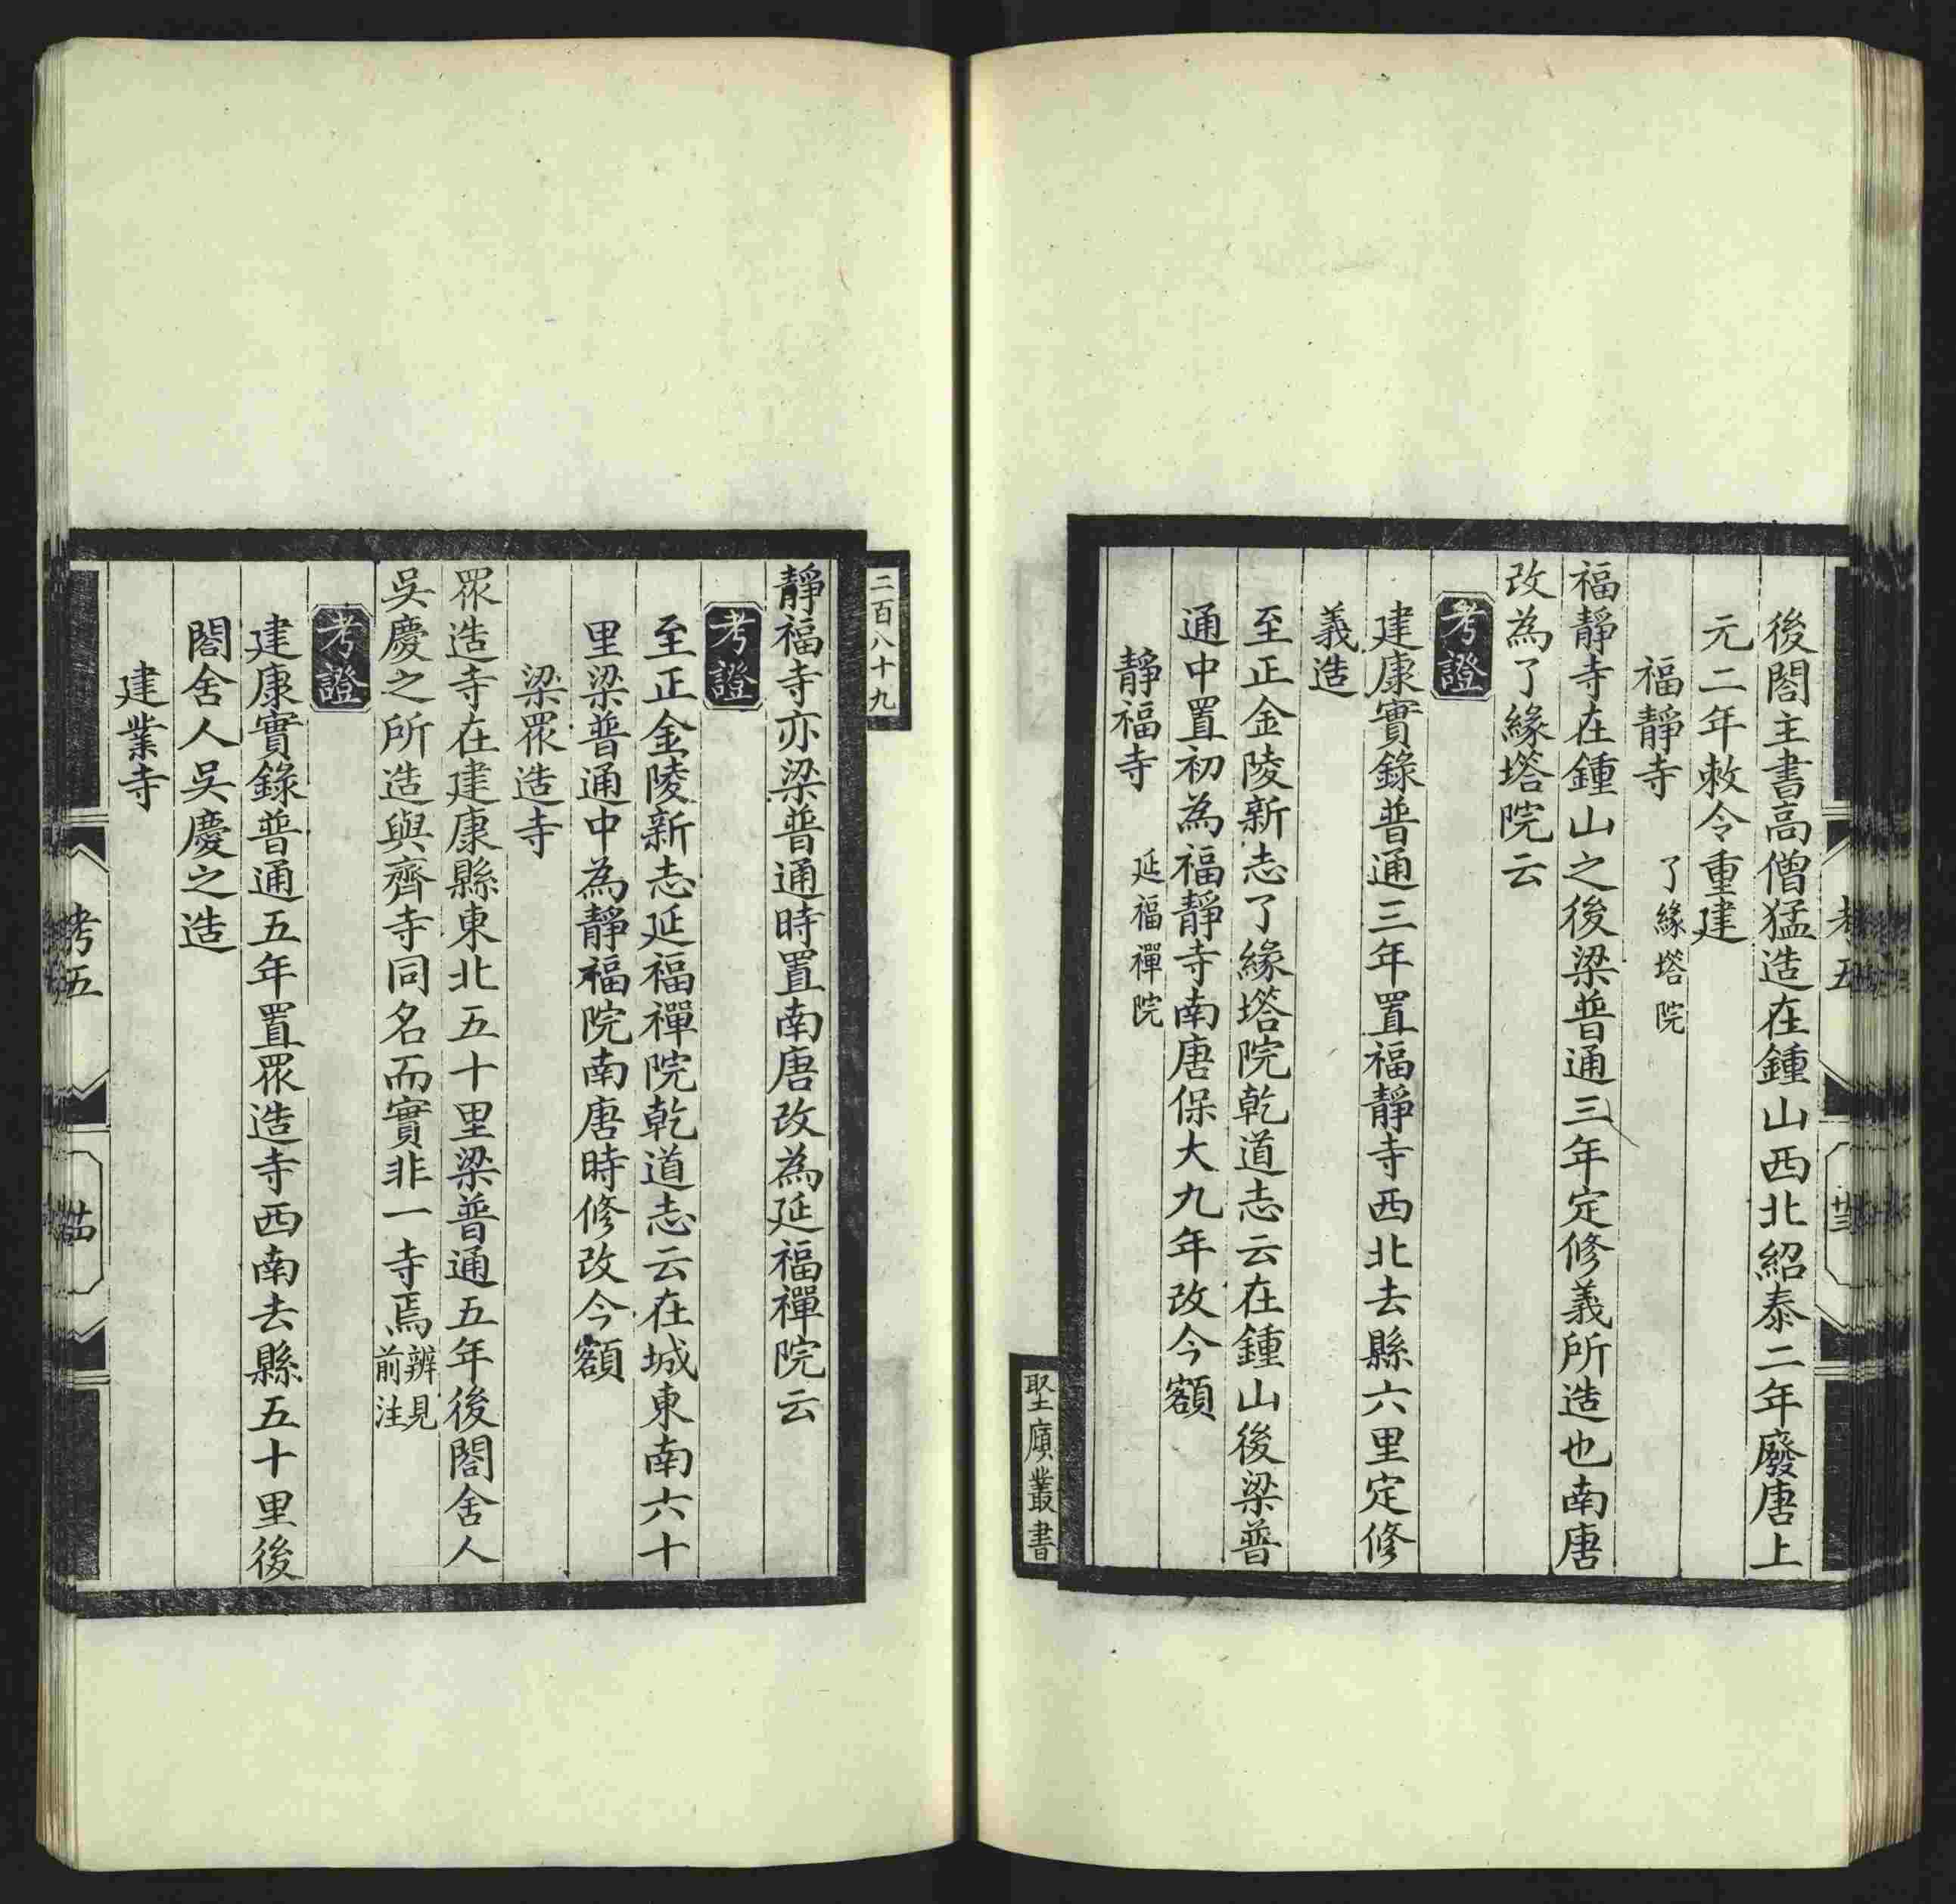 後閤主書高僧猛造在鍾山西北紹泰二年廢唐上
元二年敕令重建
福靜寺 了緣塔院
福靜寺在鍾山之後梁普通三年定修義所造也南唐
改為了緣塔院云
考證
建康實錄普通三年置福靜寺西北去縣六里定修
義造
至正金陵新志了緣塔院乾道志云在鍾山後梁普
通中置初為福靜寺南唐保大九年改今額
靜福寺 延福禪院
考五
廿三
埾廎叢書
二百八十九
靜福寺亦梁普通時置南唐改為延福禪院云
考證
至正金陵新志延福禪院乾道志云在城東南六十
里梁普通中為靜福院南唐時修改今額
梁眾造寺
眾造寺在建康縣東北五十里梁普通五年後閤舍人
吳慶之所造與齊寺同名而實非一寺焉辨見前注
考證
建康實錄普通五年置眾造寺西南去縣五十里後
閤舍人吳慶之造
建業寺
考五